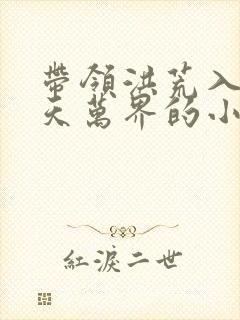 帶領洪荒入
天萬界的小
紅淚二世